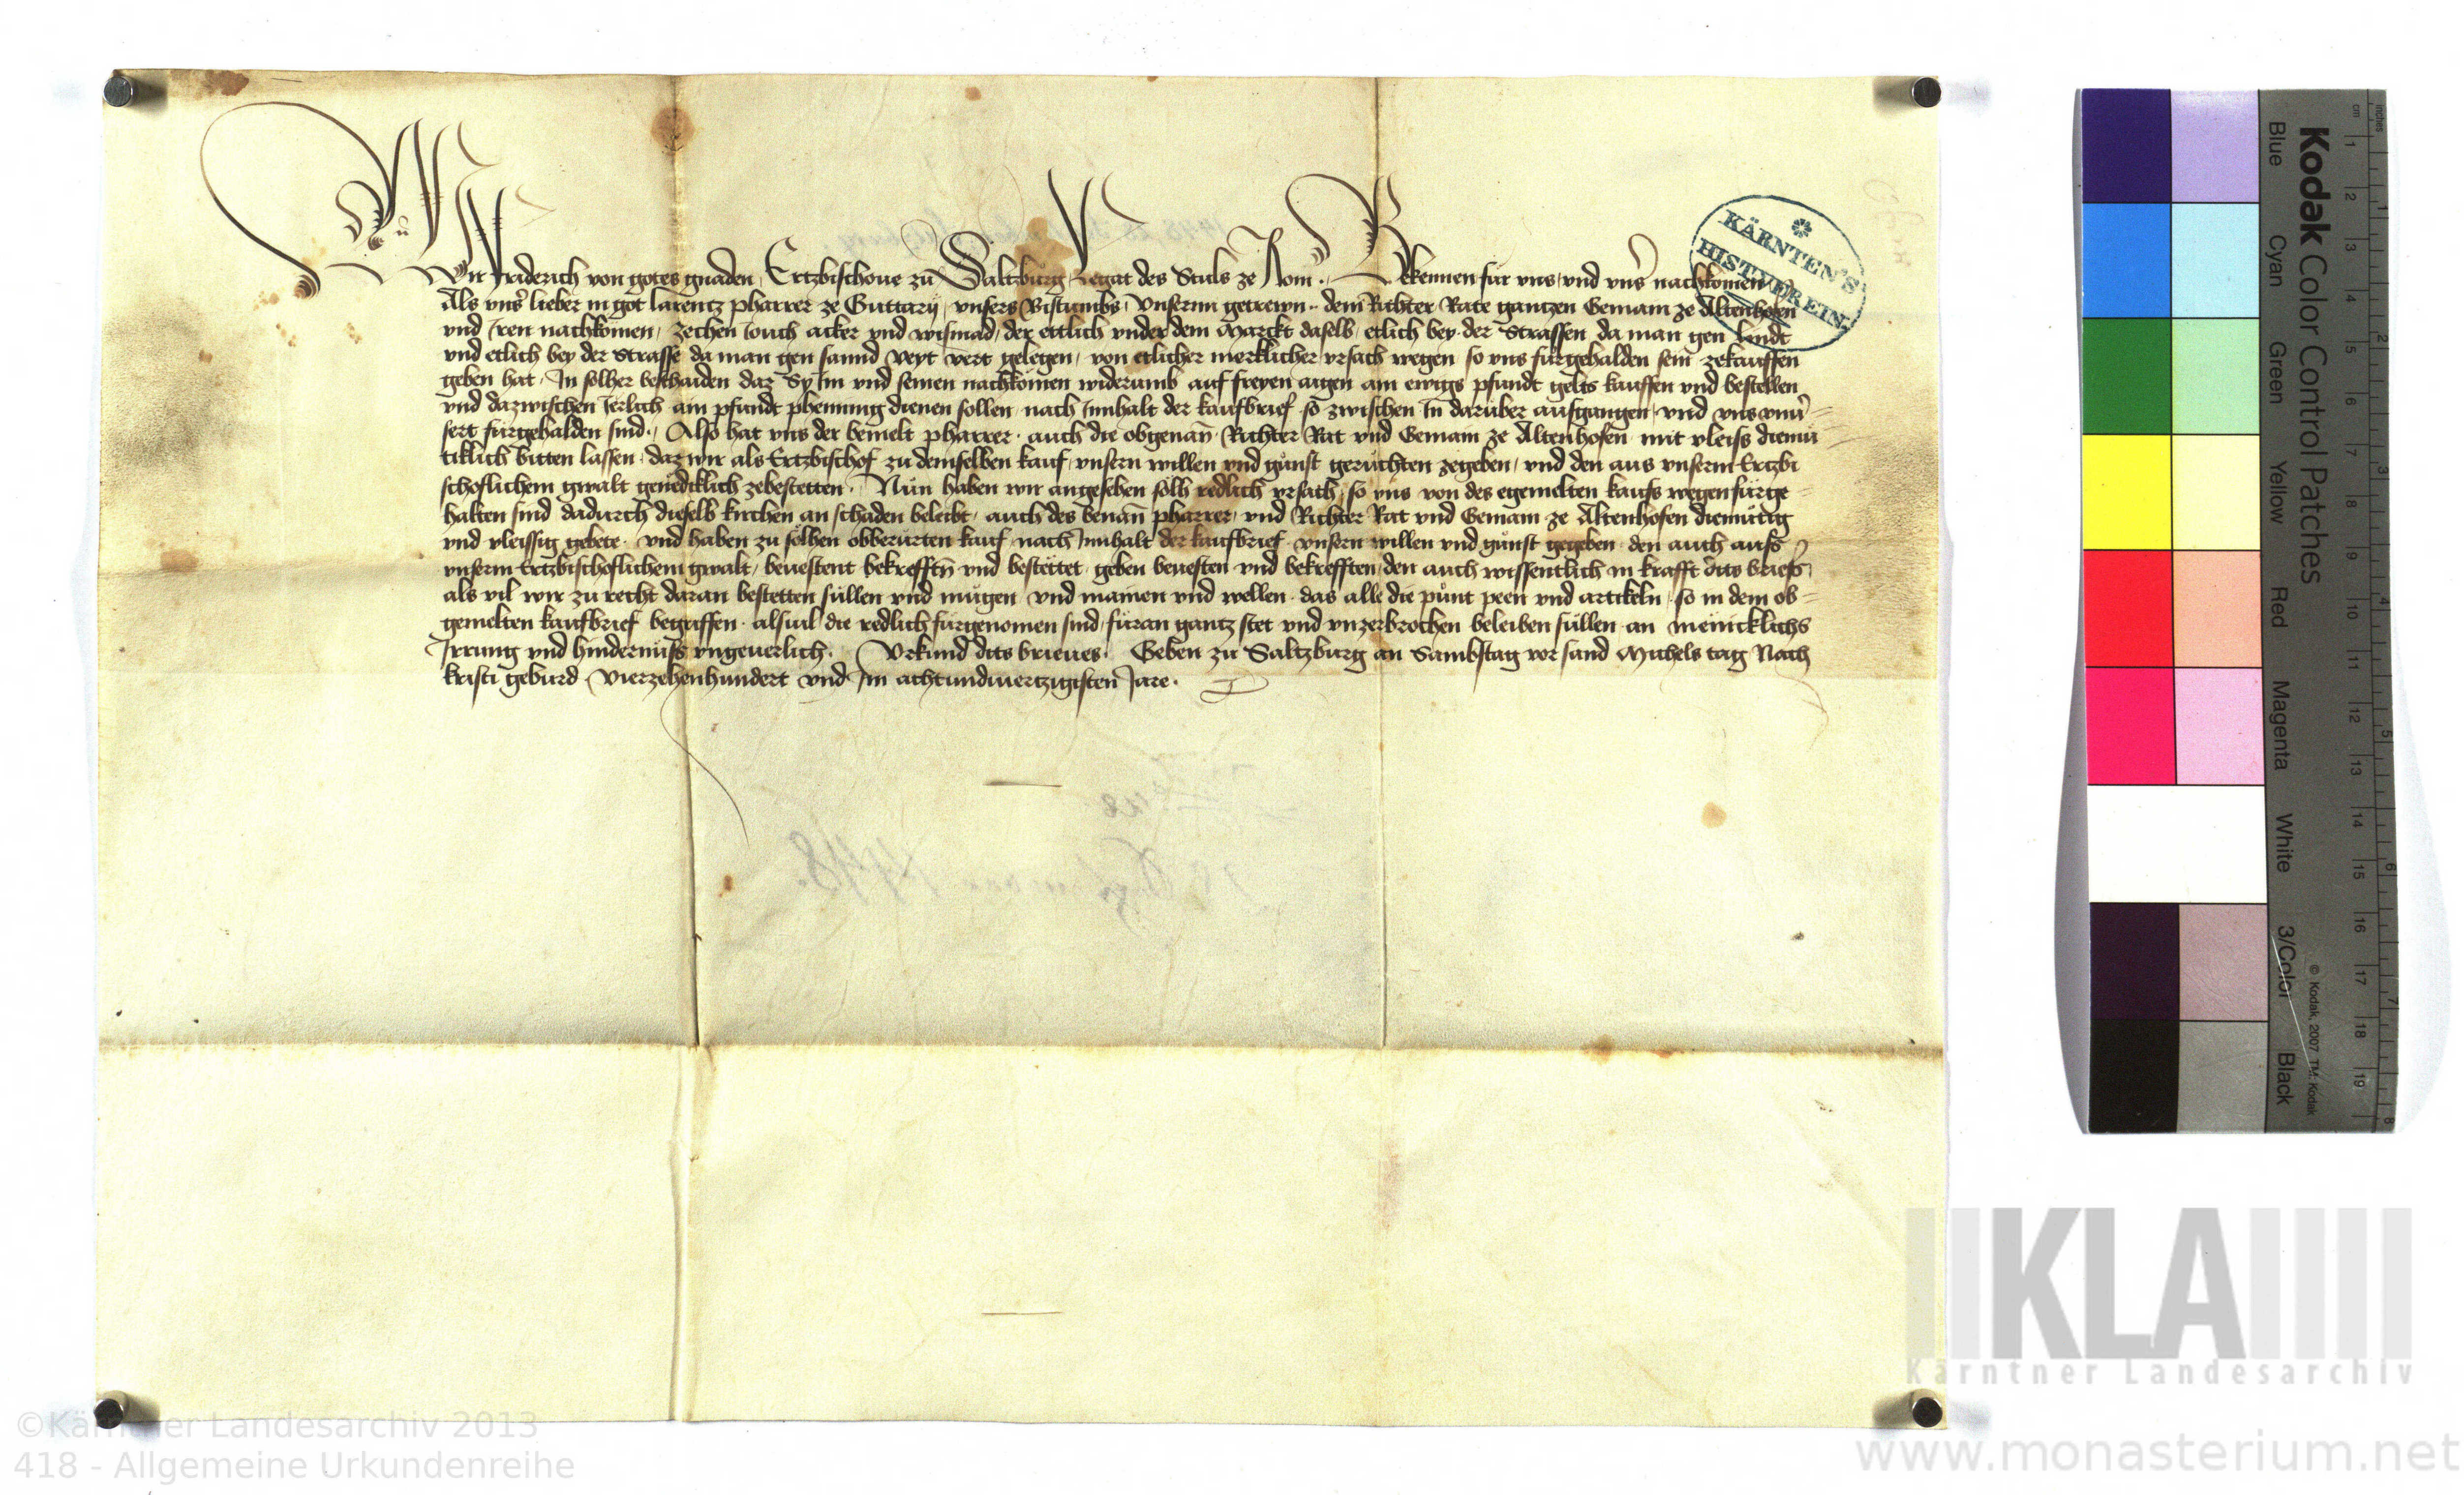 Wir Friderich von gotes gnaden, Ertzbischoue zů Saltzburg Legat des Stuls ze Rom. Bekennen für vns vnd vns̉ nachkomen
Als vns̉ lieber in got larentz pharrer ze Guttarŋ, vnsers Bistumbs, vnserm getrewn.. dem Richter Rate gantzen Gemain ze Altenhofen
vnd Jren nachkomen, zechen Jouch acker vnd wismad, der ettlich vnder dem Marckt daselb, etlich bey der Strassen da man gen Lindt
vnd etlich bey der Strasse da man gen sannd veyt vert gelegen, von etlicher mercklicher vrsach wegen so vns fürgehalden sein zekauffen
geben hat, Jn solher beschaiden daz Sy Jm vnd seinen nachkomen widerumb auf freyen aigen ain ewigs pfundt gelts kauffen vnd bestellen
vnd dazwischen Jerlich ain pfundt phenning dienen sollen nach Jnnhalt der kaufbrief so zwischen Jn darüber ausgangen vnd vns vnuer=
sert fürgehalden sind. Also hat vns der bemelt pharrer. auch die obgenan̄ Richter Rat vnd Gemain ze Altenhofen mit vleiss diemü
tiklich bitten lassen daz wir als Ertzbischof zu demselben kauf vnsern willen vnd gůnst gerüchten zegeben, vnd den aus vnserm Ertzbi
schoflichem gwalt genedicklich zebestetten. Nün haben wir angesehen sölh redlich vrsach, so vns von des egemelten kaufs wegen fürge=
halten sind dadurch dieselb kirchen an schaden beleibt, auch des benan̄ pharrer, vnd Richter Rat vnd Gemain ze Altenhofen diemütig
vnd vleissig gebete. vnd haben zu sölhen obberürten kauf nach Jnnhalt der kaufbrief vnsern willen vnd gůnst gegeben den auch aufs
vnserm Ertzbischoflichem gwalt, beuestent bekrefftn̄ vnd bestëttet, geben beuesten vnd bekrefften, den auch wissentlich in krafft dits briefs,
als vil wir zu recht daran bestetten süllen vnd mügen vnd mainen vnd wellen. das alle die pünt peen vnd artikeln, so in dem ob=
gemelten kaufbrief begriffen. alsuil die redlich fürgenomen sind, füran gantz stet vnd vnzerbrochen beleiben süllen an menicklichs
Jrrung vnd hindernüss vngeuerlich. Vrkund dits brieues. Geben zu Saltzburg an Sambstag vor sand Michels tag Nach
kristi geburd vierzehenhundert vnd Jm achtundviertzigisten Jare.
KÄRNTEN'S
HIST.VEREIN.
Kodak Color Control Patches
Blue Cyan Green Yellow Red Magenta White 3/Color Black
© Kodak, 2007 TM: Kodak
inches 1 2 3 4 5 6 7 8
cm 1 2 3 4 5 6 7 8 9 10 11 12 13 14 15 16 17 18 19
KLA
Kärntner Landesarchiv
©Kärntner Landesarchiv 2013
418 - Allgemeine Urkundenreihe
www.monasterium.net